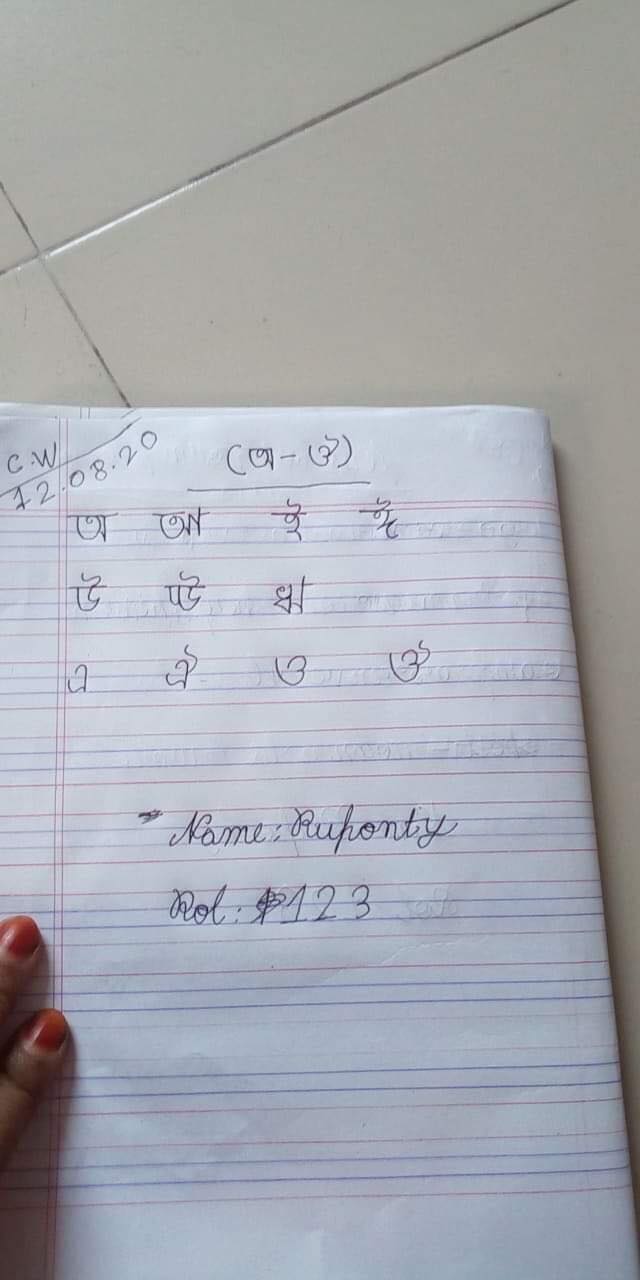 C.W
12.08.20
(অ - ঔ)
অ আ ই ঈ
উ ঊ ঋ
এ ঐ ও ঔ
Name: Ruponty
Rol: 123